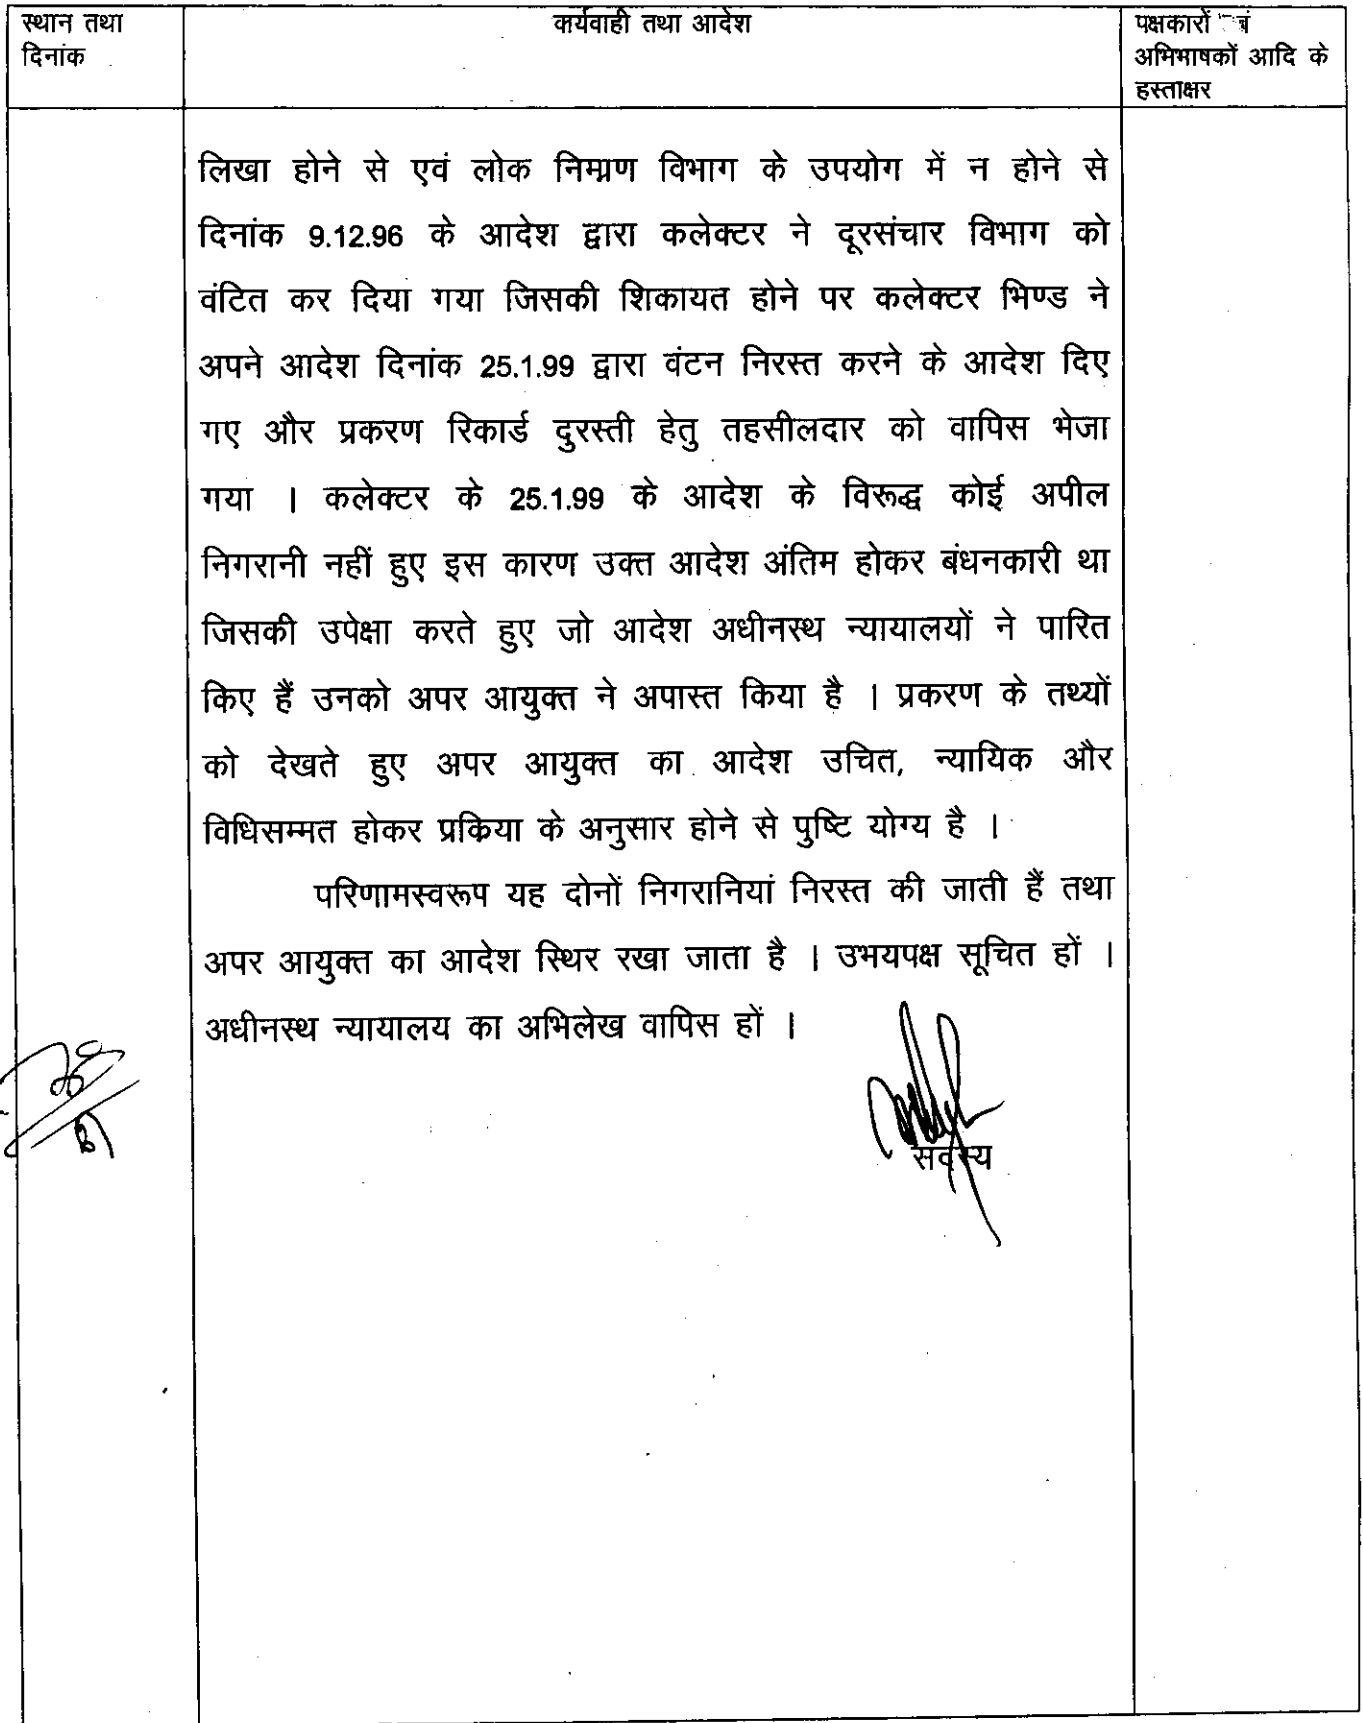 स्थान तथा
दिनांक
कार्यवाही तथा आदेश
पक्षकारों
अभिभाषकों आदि के
हस्ताक्षर
लिखा होने से एवं लोक निमाण विभाग के उपयोग में न होने से
दिनांक 9.12.96 के आदेश द्वारा कलेक्टर ने दूरसंचार विभाग को
वंटित कर दिया गया जिसकी शिकायत होने पर कलेक्टर भिण्ड ने
अपने आदेश दिनांक 25.1.99 द्वारा वंटन निरस्त करने के आदेश दिए
गए और प्रकरण रिकार्ड दुरस्ती हेतु तहसीलदार को वापिस भेजा
गया । कलेक्टर के 25.1.99 के आदेश के विरूद्ध कोई अपील
निगरानी नहीं हुए इस कारण उक्त आदेश अंतिम होकर बंधनकारी था
जिसकी उपेक्षा करते हुए जो आदेश अधीनस्थ न्यायालयों ने पारित
किए हैं उनको अपर आयुक्त ने अपास्त किया है । प्रकरण के तथ्यों
को देखते हुए अपर आयुक्त का आदेश उचित, न्यायिक और
विधिसम्मत होकर प्रकिया के अनुसार होने से पुष्टि योग्य है ।
परिणामस्वरूप यह दोनों निगरानियां निरस्त की जाती हैं तथा
अपर आयुक्त का आदेश स्थिर रखा जाता है । उभयपक्ष सूचित हों ।
अधीनस्थ न्यायालय का अभिलेख वापिस हों ।
सदस्य